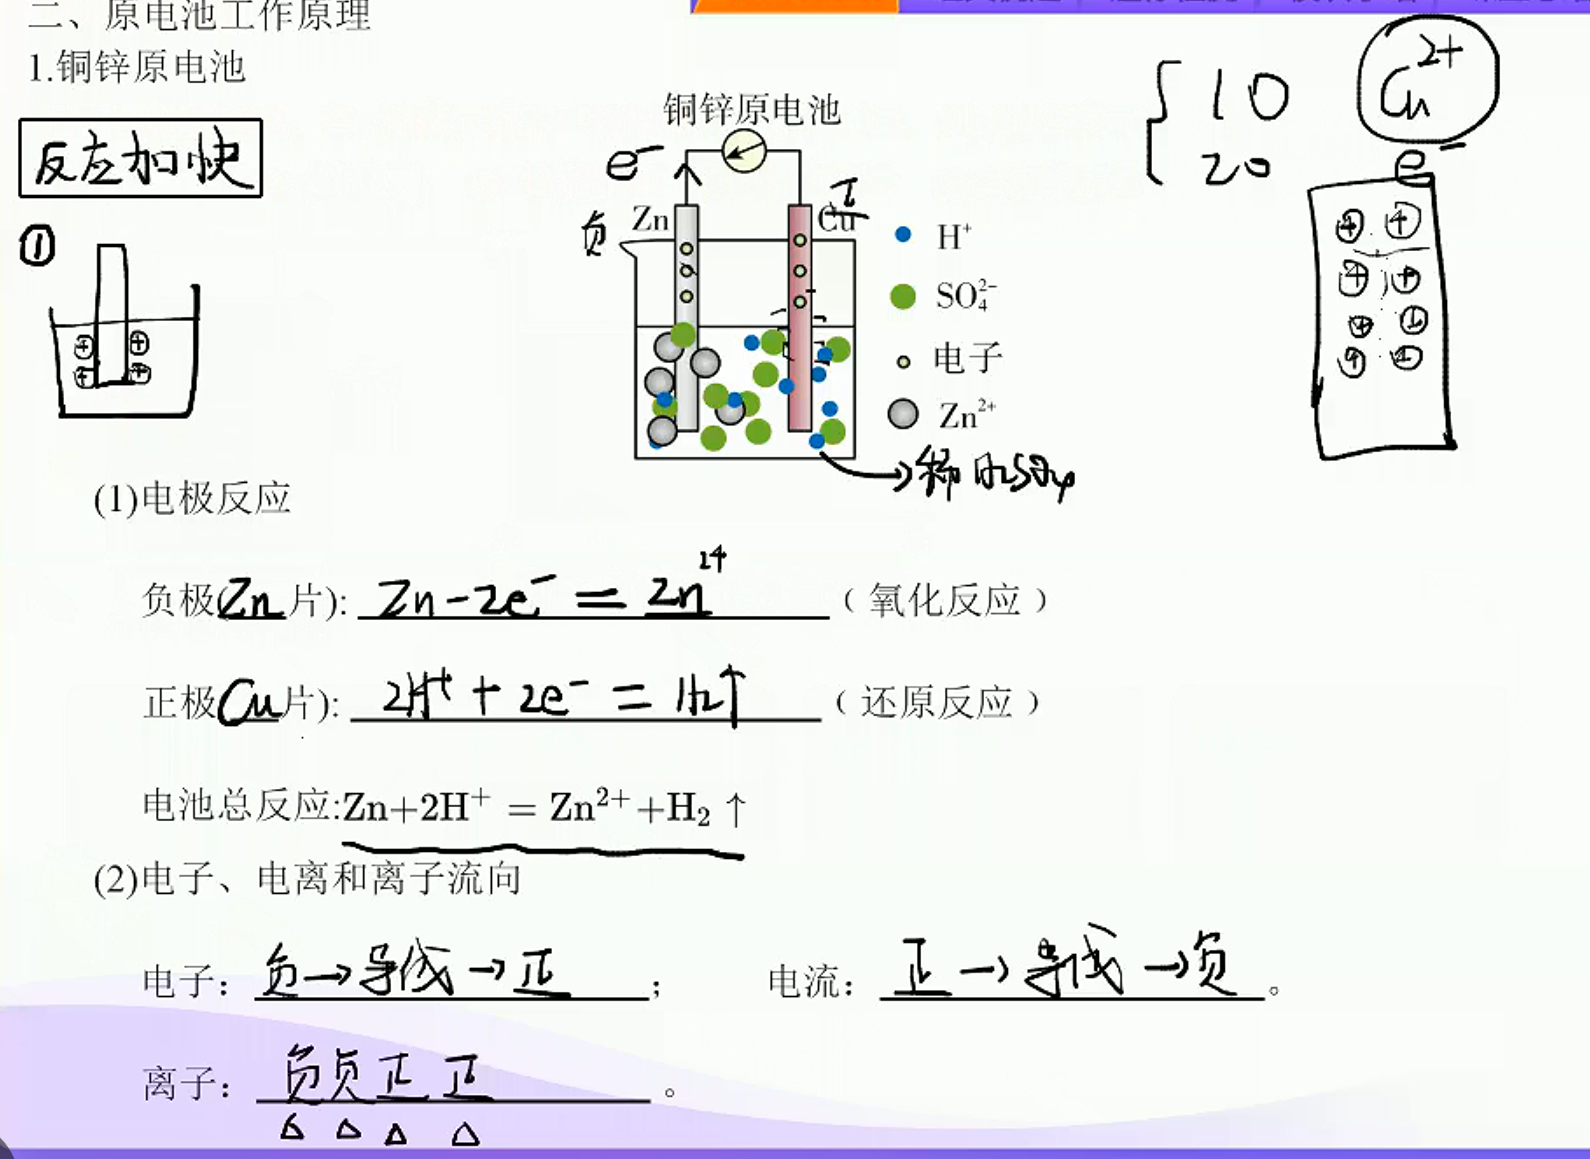 二、原电池工作原理
1.铜锌原电池
反应加快
铜锌原电池
e⁻
Zn
负
Cu
正
H⁺
SO₄²⁻
电子
Zn²⁺
稀H₂SO₄
{ 10
20
Cu²⁺
e⁻
①
+ +
+ +
(1)电极反应
负极(Zn片): Zn-2e⁻ = Zn²⁺ (氧化反应)
正极(Cu片): 2H⁺ + 2e⁻ = H₂↑ (还原反应)
电池总反应:Zn+2H⁺ = Zn²⁺+H₂↑
(2)电子、电离和离子流向
电子: 负→导线→正; 电流: 正→导线→负。
离子: 负负正正。